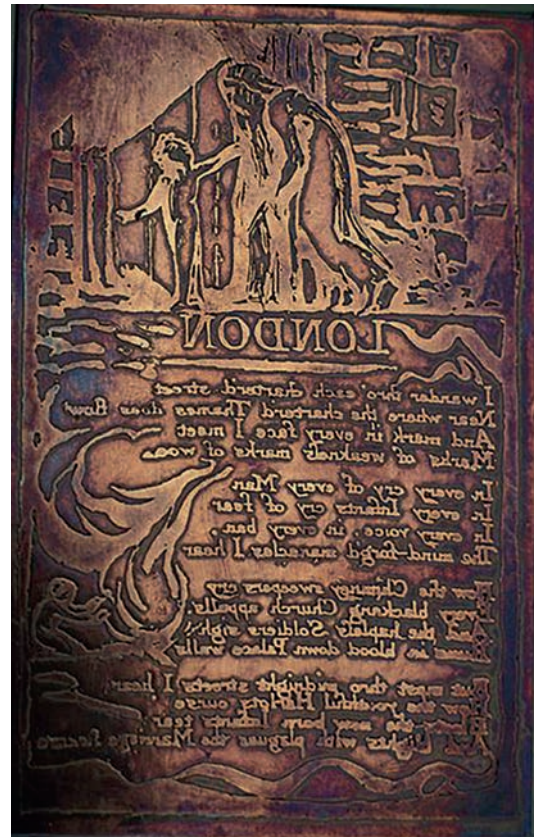 LONDON
I wander thro' each charter'd street
Near where the charter'd Thames does flow
And mark in every face I meet
Marks of weakness marks of woe
In every cry of every Man
In every Infants cry of fear
In every voice, in every ban,
The mind-forg'd manacles I hear
How the Chimney sweepers cry
Every blackning Church appalls,
And the hapless Soldiers sigh
Runs in blood down Palace walls
But most thro' midnight streets I hear
How the youthful Harlots curse
Blasts the new born Infants tear
And blights with plagues the Marriage hearse